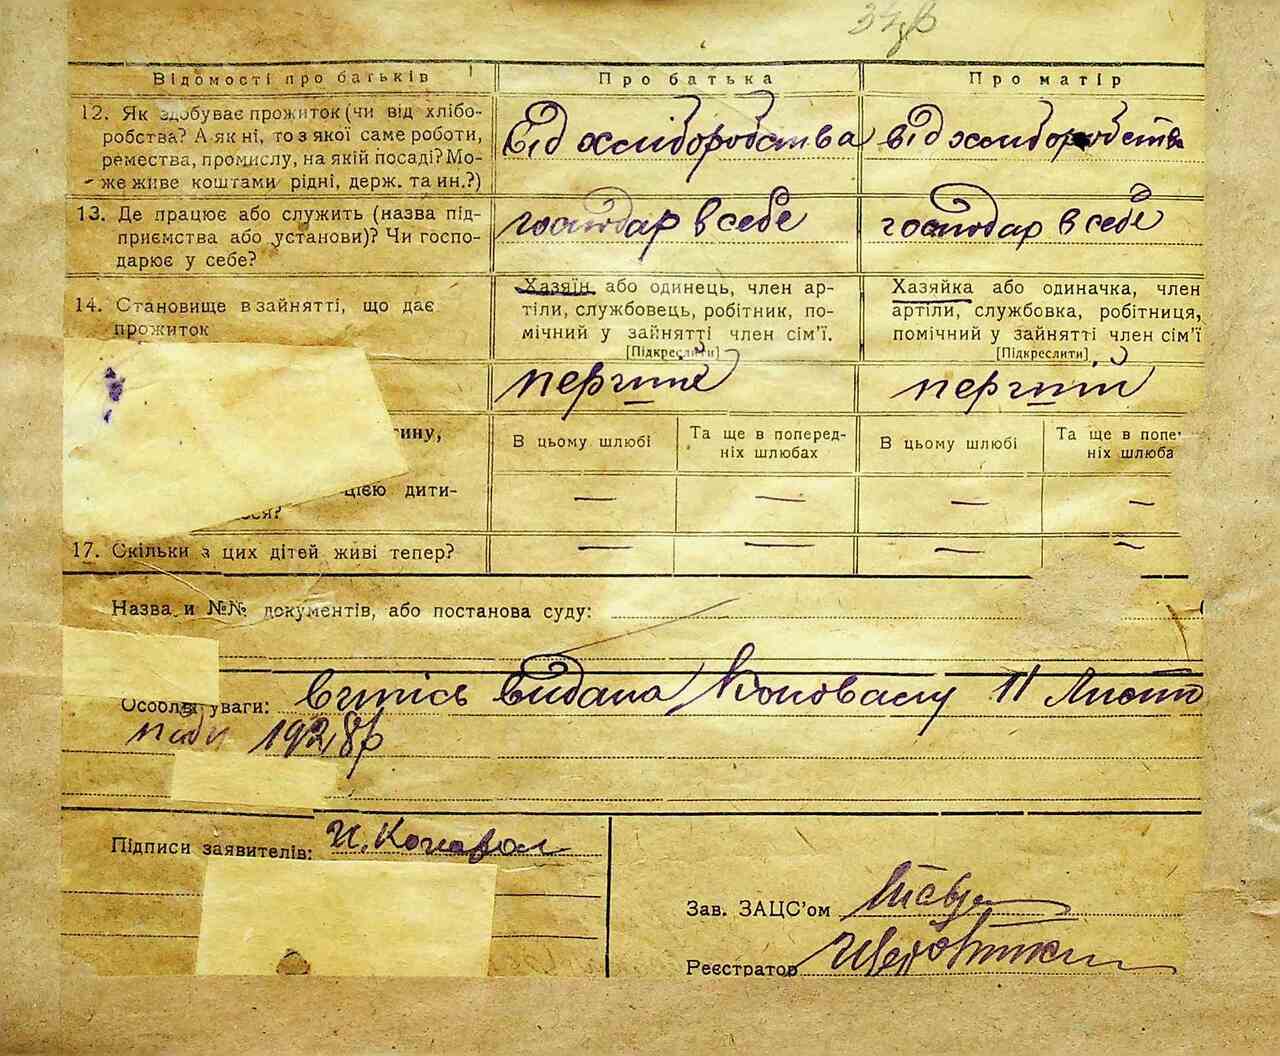 Відомості про батьків
Про батька
Про матір
12. Як здобуває прожиток (чи від хлібо-
робства? А як ні, то з якої саме роботи,
ремества, промислу, на якій посаді? Мо-
же живе коштами рідні, держ. та ин.?)
Від хліборобства
від хліборобства
13. Де працює або служить (назва під-
приємства або установи)? Чи госпо-
дарює у себе?
господар в себе
господар в себе
14. Становище в зайнятті, що дає
прожиток
Хазяїн або одинець, член ар-
тіли, службовець, робітник, по-
мічний у зайнятті член сім'ї.
[Підкреслити]
Хазяйка або одиначка, член
артіли, службовка, робітниця,
помічний у зайнятті член сім'ї
[Підкреслити]
тину,
В цьому шлюбі
Та ще в поперед-
ніх шлюбах
В цьому шлюбі
Та ще в попе
ніх шлюба
цією дити-
ся?
— — — —
17. Скільки з цих дітей живі тепер?
— — — —
Назва и №№ документів, або постанова суду:
Особливі уваги: видана Коновалу 11 Листо
пада 1928р
Підписи заявителів: И. Коновал
Зав. ЗАЦС'ом
Реєстратор